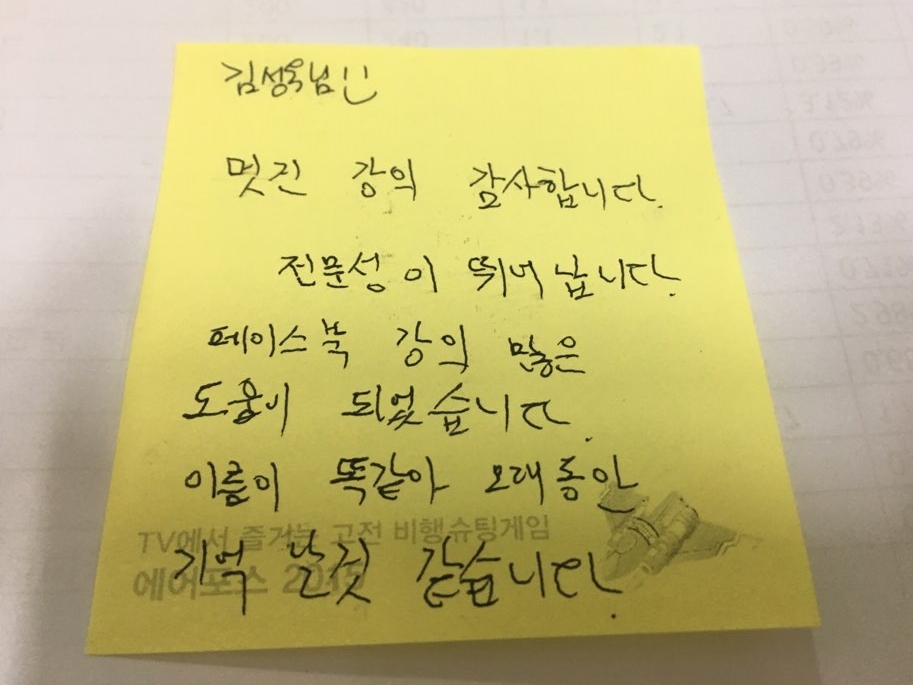 김성욱님 !!
멋진 강의 감사합니다.
전문성이 뛰어 납니다.
페이스북 강의 많은
도움이 되었습니다.
이름이 똑같아 오래동안
기억 날것 같습니다.
TV에서 즐기는 고전 비행슈팅게임
에어포스 2015